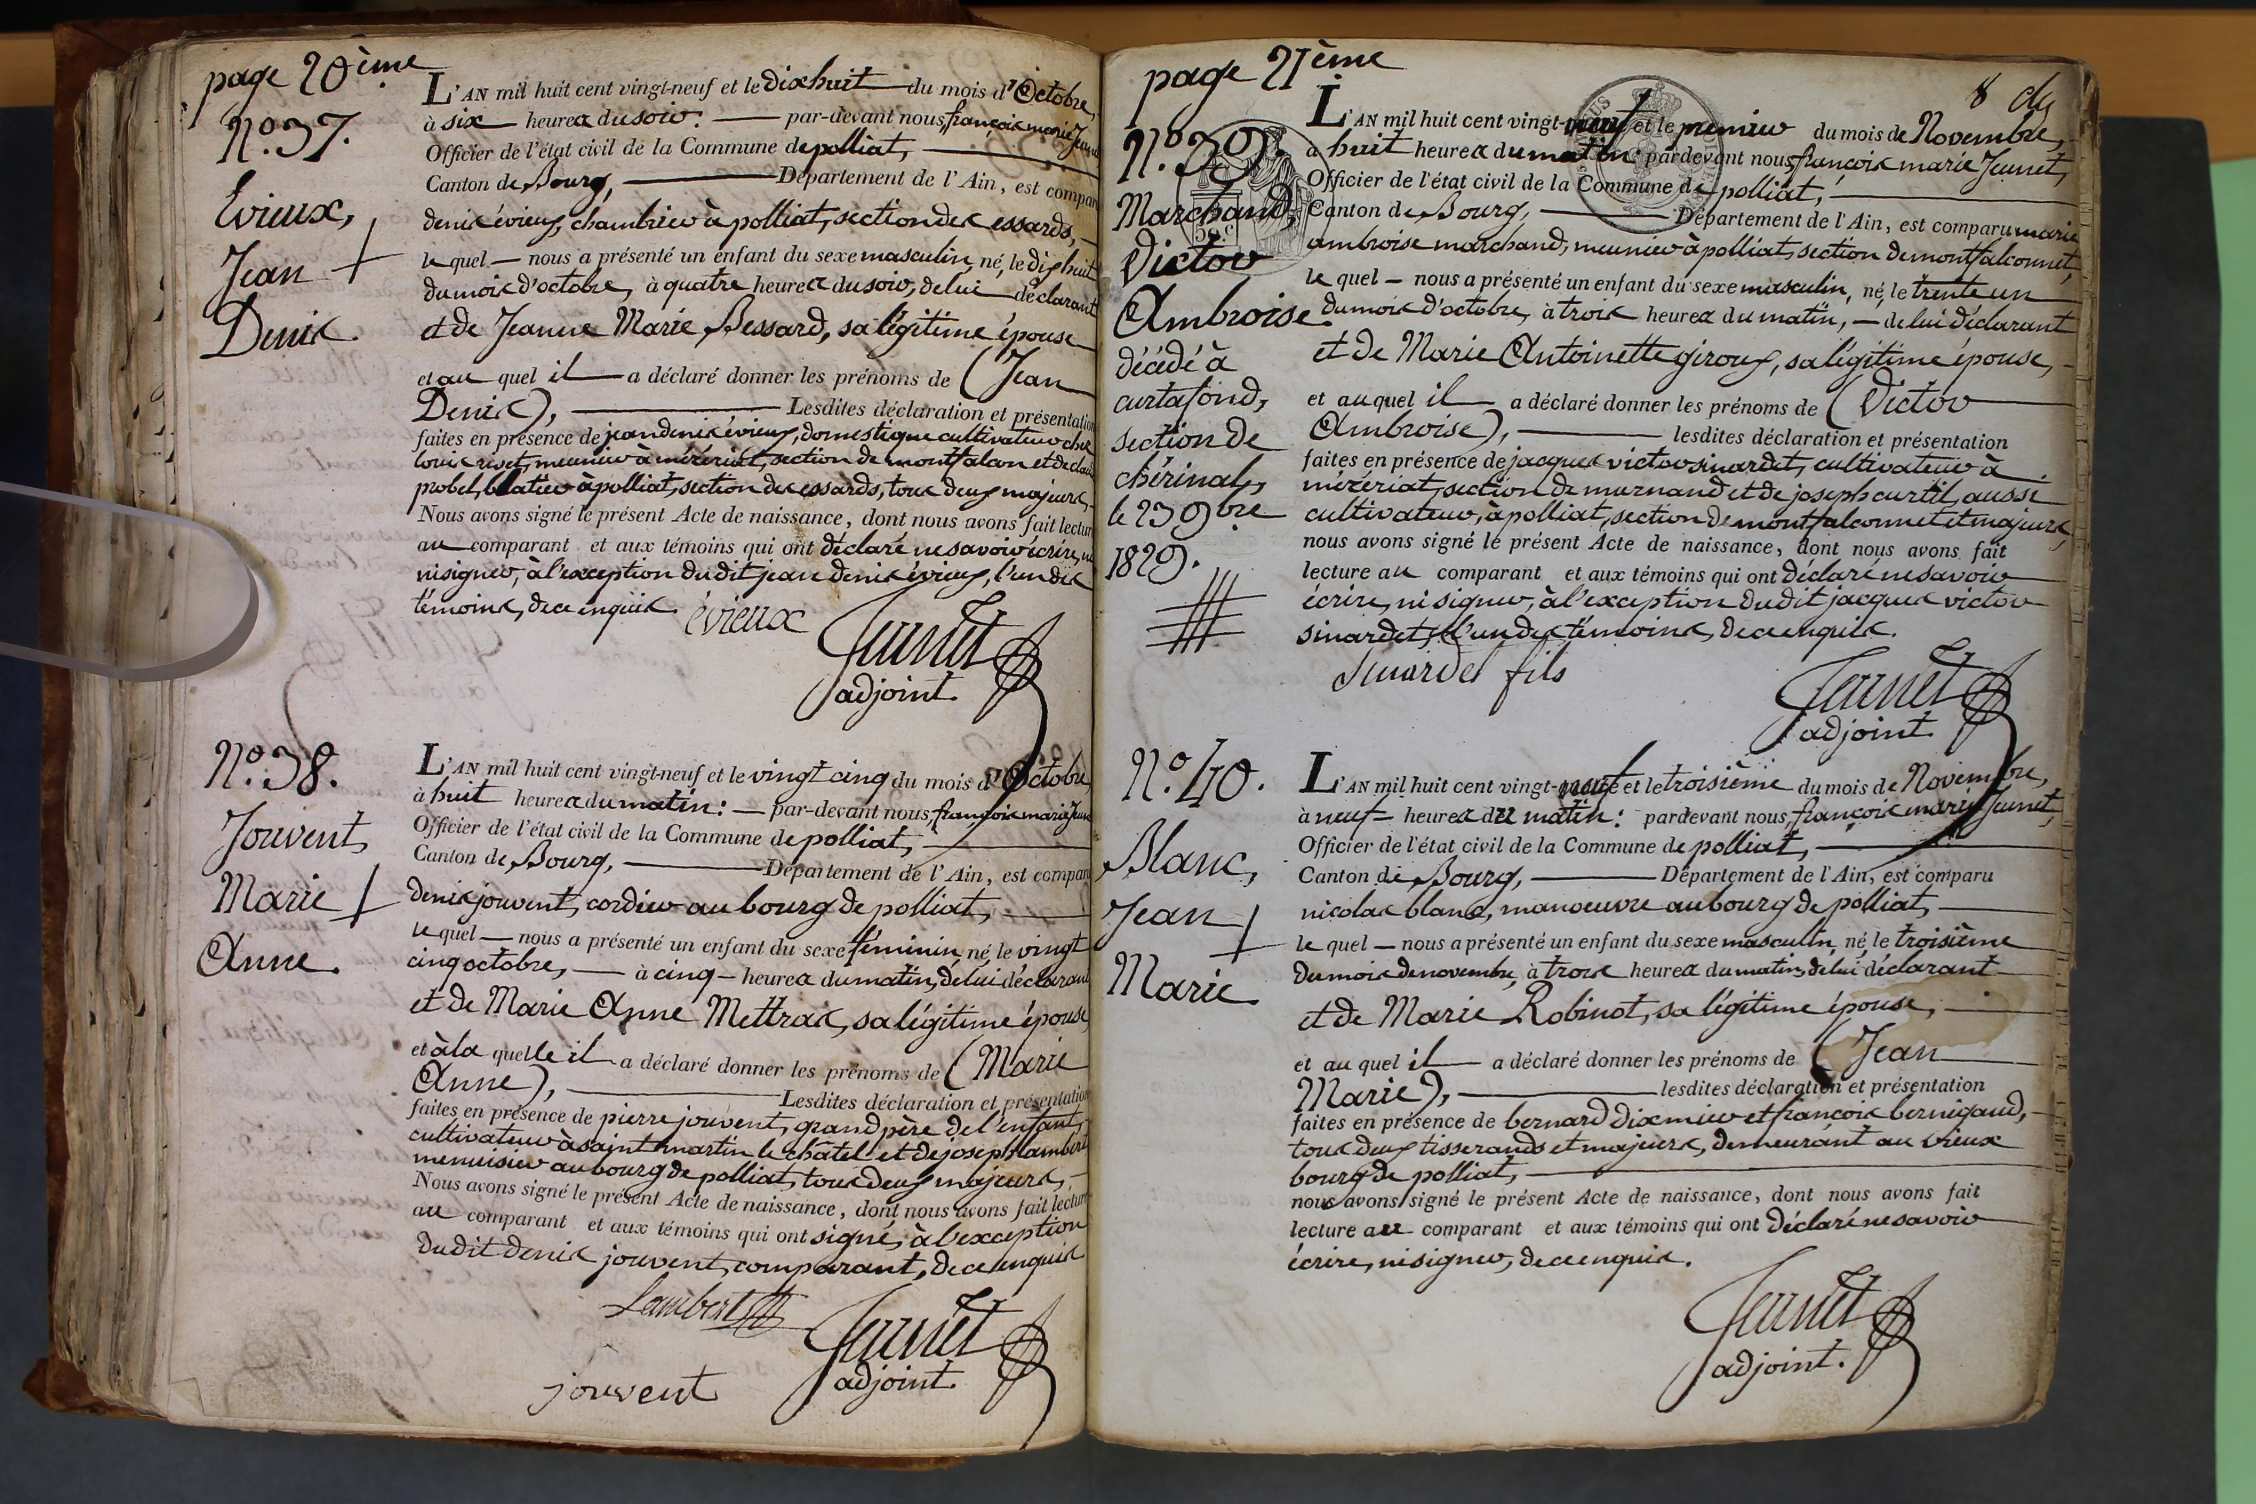 page 20ème
N.º 37.
Evieux,
Jean
Denis.
L'AN mil huit cent vingt-neuf et le dix huit du mois d'Octobre,
à six heures du soir: par-devant nous, françois marie Jeunet
Officier de l'état civil de la Commune de polliat,
Canton de Bourg, Département de l'Ain, est comparu
denis évieux, chambrier à polliat, section des essards,
le quel nous a présenté un enfant du sexe masculin, né, le dix huit
du mois d'octobre, à quatre heures du soir, de lui déclarant
et de Jeanne Marie Bessard, sa légitime épouse
et au quel il a déclaré donner les prénoms de (Jean
Denis), Lesdites déclaration et présentation
faites en présence de jean denis évieux, domestique cultivateur chez
louis rivet, meunier à mézériat, section de montfalcon et de claude
probel, blatier à polliat, section des essards, tous deux majeurs,
Nous avons signé le présent Acte de naissance, dont nous avons fait lecture
au comparant et aux témoins qui ont déclaré ne savoir écrire, ni
ni signer, à l'exception du dit jean denis évieux, l'un des
témoins, de ce enquis.
évieux
Jeunet
adjoint.
N.º 38.
Jouvent,
Marie
Anne.
L'AN mil huit cent vingt-neuf et le vingt cinq du mois d'Octobre
à huit heures du matin: par-devant nous, françois marie Jeunet
Officier de l'état civil de la Commune de polliat,
Canton de Bourg, Département de l'Ain, est comparu
denis jouvent, cordier au bourg de polliat,
le quel nous a présenté un enfant du sexe féminin, né, le vingt
cinq octobre, à cinq heures du matin, de lui déclarant
et de Marie Anne Mettras, sa légitime épouse
et à la quelle il a déclaré donner les prénoms de (Marie
Anne), Lesdites déclaration et présentation
faites en présence de pierre jouvent, grand père de l'enfant,
cultivateur à saint martin le châtel et de joseph lambert
menuisier au bourg de polliat, tous deux majeurs,
Nous avons signé le présent Acte de naissance, dont nous avons fait lecture
au comparant et aux témoins qui ont signé, à l'exception
du dit denis jouvent, comparant, de ce enquis
Lambert
Jeunet
adjoint.
jouvent
page 21ème
8
N.º 39.
Marchand,
Victor
Ambroise.
décédé à
curtafond,
section de
chérinal,
le 23 9bre
1829.
L'AN mil huit cent vingt-neuf et le premier du mois de Novembre,
à huit heures du matin: pardevant nous, françois marie Jeunet,
Officier de l'état civil de la Commune de polliat,
Canton de Bourg, Département de l'Ain, est comparu marie
ambroise marchand, meunier à polliat, section de montfalconnet,
le quel nous a présenté un enfant du sexe masculin, né, le trente un
du mois d'octobre, à trois heures du matin, de lui déclarant
et de Marie Antoinette giroux, sa légitime épouse,
et au quel il a déclaré donner les prénoms de (Victor
Ambroise), lesdites déclaration et présentation
faites en présence de jacques victor sinardet, cultivateur à
mézériat, section de murnand et de joseph curtil, aussi
cultivateur, à polliat, section de montfalconnet et majeurs,
nous avons signé le présent Acte de naissance, dont nous avons fait
lecture au comparant et aux témoins qui ont déclaré ne savoir
écrire, ni signer, à l'exception du dit jacques victor
sinardet, l'un des témoins, de ce enquis.
Sinardet fils
Jeunet
adjoint.
N.º 40.
Blanc,
Jean
Marie.
L'AN mil huit cent vingt-neuf et le troisième du mois de Novembre,
à neuf heures du matin: pardevant nous, françois marie Jeunet,
Officier de l'état civil de la Commune de polliat,
Canton de Bourg, Département de l'Ain, est comparu
nicolas blanc, manoeuvre au bourg de polliat,
le quel nous a présenté un enfant du sexe masculin, né, le troisième
du mois de novembre, à trois heures du matin, de lui déclarant
et de Marie Robinot, sa légitime épouse,
et au quel il a déclaré donner les prénoms de (Jean
Marie), lesdites déclaration et présentation
faites en présence de bernard dixmier et françois bernigaud,
tous deux tisserands et majeurs, demeurant au vieux
bourg de polliat,
nous avons signé le présent Acte de naissance, dont nous avons fait
lecture au comparant et aux témoins qui ont déclaré ne savoir
écrire, ni signer, de ce enquis.
Jeunet
adjoint.